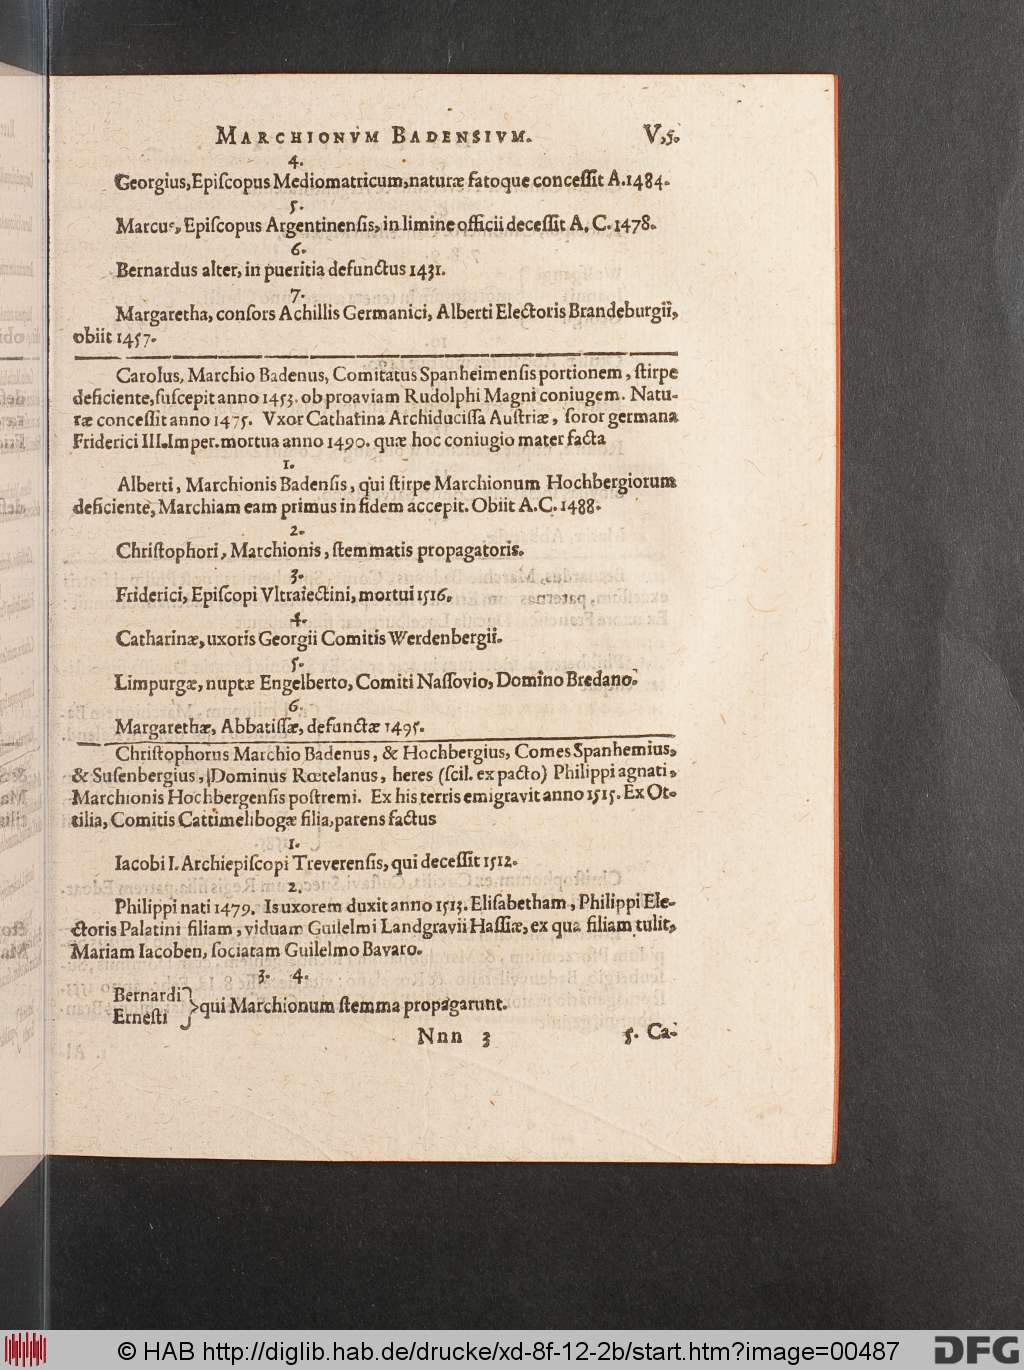 MARCHIONVM BADENSIVM. V,5.
4.
Georgius,Epiſcopus Mediomatricum,naturæ fatoque conceſſit A.1484.
5.
Marcus, Epiſcopus Argentinenſis, in limine officii deceſſit A. C. 1478.
6.
Bernardus alter, in pueritia defunctus 1431.
7.
Margaretha, conſors Achillis Germanici, Alberti Electoris Brandeburgii,
obiit 1457.
Carolus, Marchio Badenus, Comitatus Spanheimenſis portionem, ſtirpe
deficiente,ſuſcepit anno 1453. ob proaviam Rudolphi Magni coniugem. Natu-
ræ conceſſit anno 1475. Vxor Catharina Archiduciſſa Auſtriæ, ſoror germana
Friderici III.Imper.mortua anno 1490. quæ hoc coniugio mater facta
1.
Alberti, Marchionis Badenſis, qui ſtirpe Marchionum Hochbergiorum
deficiente, Marchiam eam primus in fidem accepit. Obiit A.C. 1488.
2.
Chriſtophori, Marchionis, ſtemmatis propagatoris.
3.
Friderici, Epiſcopi Vltraiectini, mortui 1516.
4.
Catharinæ, uxoris Georgii Comitis Werdenbergii.
5.
Limpurgæ, nuptæ Engelberto, Comiti Naſſovio, Domino Bredano.
6.
Margarethæ, Abbatiſſæ, defunctæ 1495.
Chriſtophorus Marchio Badenus, & Hochbergius, Comes Spanhemius,
& Suſenbergius, Dominus Rœtelanus, heres (ſcil. ex pacto) Philippi agnati,
Marchionis Hochbergenſis poſtremi. Ex his terris emigravit anno 1515. Ex Ot-
tilia, Comitis Cattimelibogæ filia, parens factus
1.
Iacobi I. Archiepiſcopi Treverenſis, qui deceſſit 1512.
2.
Philippi nati 1479. Is uxorem duxit anno 1513. Eliſabetham, Philippi Ele-
ctoris Palatini filiam, viduam Guilelmi Landgravii Haſſiæ, ex qua filiam tulit,
Mariam Iacoben, ſociatam Guilelmo Bavaro.
3. 4.
Bernardi
Erneſti } qui Marchionum ſtemma propagarunt.
Nnn 3 5. Ca-
© HAB http://diglib.hab.de/drucke/xd-8f-12-2b/start.htm?image=00487 DFG